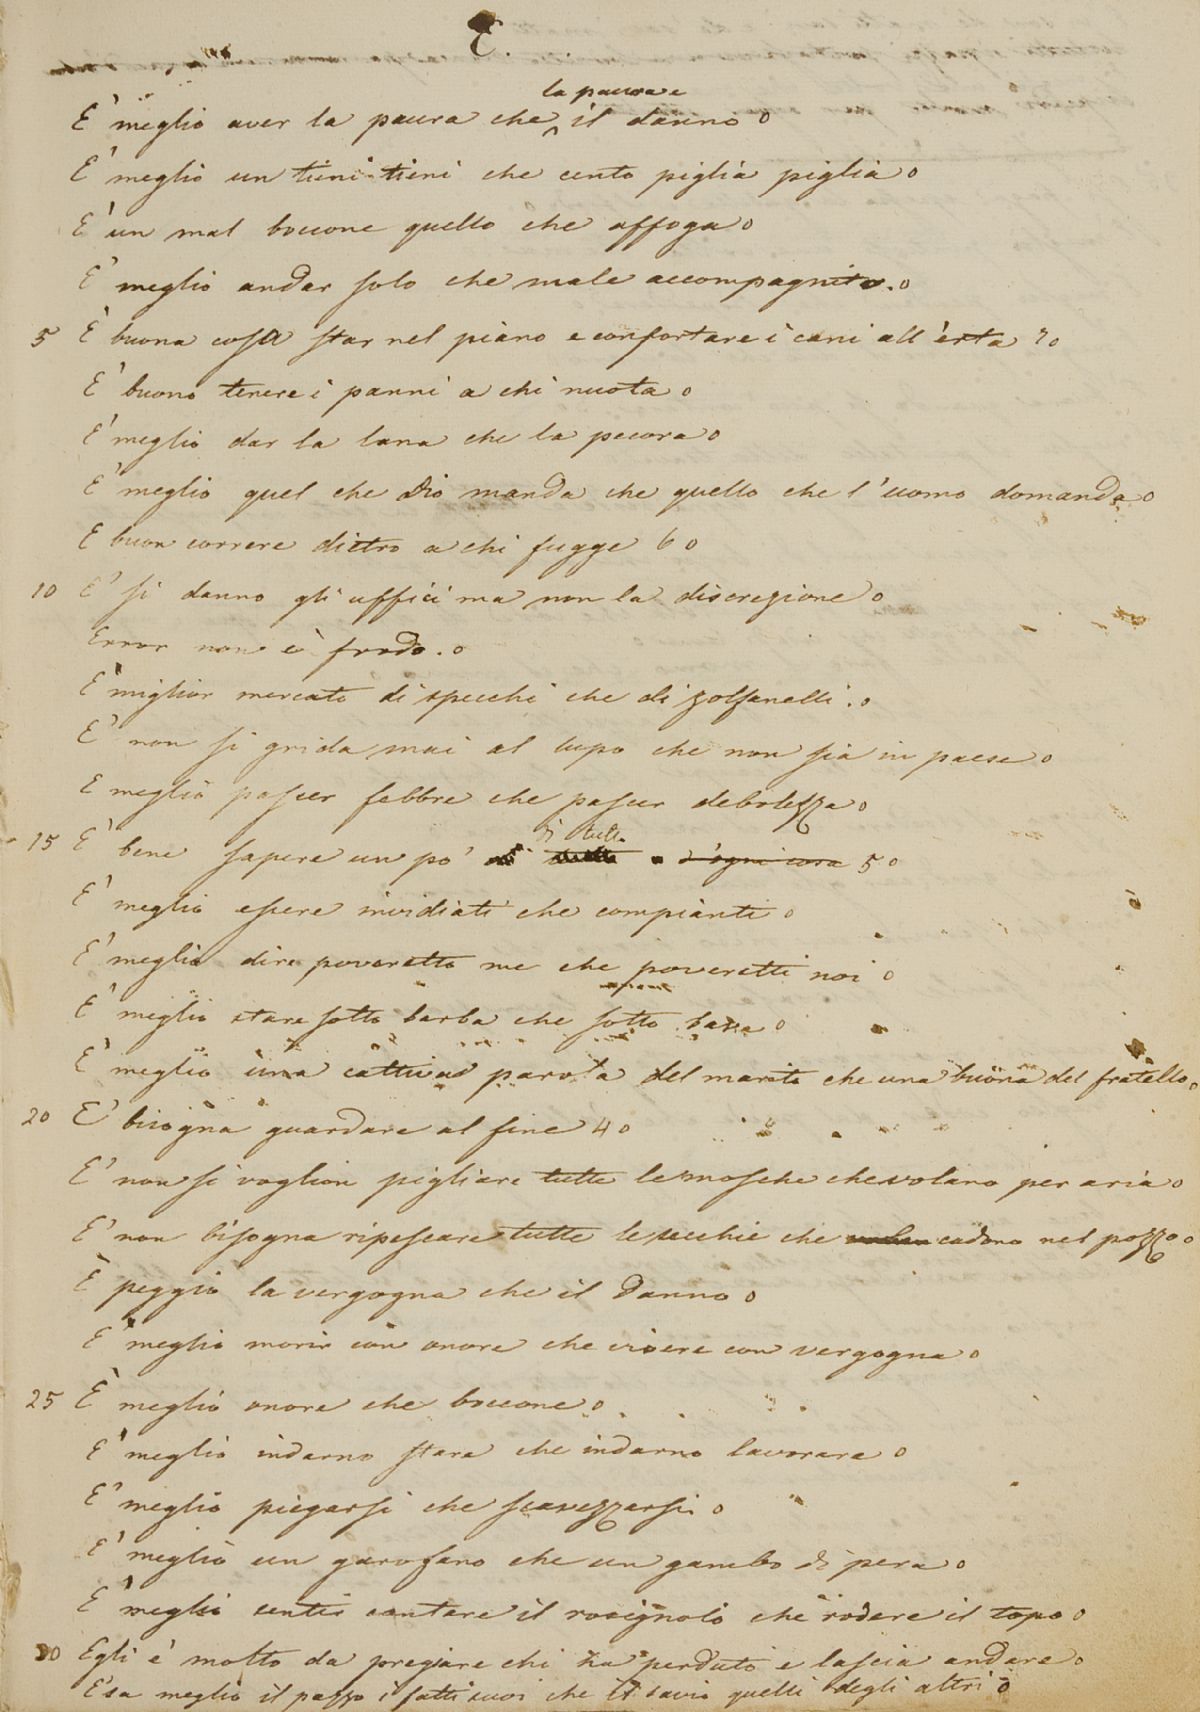 E.
la paura e
E' meglio aver la paura che il danno o
E' meglio un tieni tieni che cento piglia piglia o
E' un mal boccone quello che affoga o
E' meglio andar solo che male accompagnato. o
5 E' buona cosa star nel piano e confortare i cani all'erta 7 o
E' buono tenere i panni a chi nuota o
E' meglio dar la lana che la pecora o
E' meglio quel che Dio manda che quello che l'uomo domanda o
E buon correre dietro a chi fugge 6 o
10 E' si danno gli uffici ma non la discrezione o
Error non è frodo. o
E' miglior mercato di specchi che di zolfanelli. o
E' non si grida mai al lupo che non sia in paese o
E meglio pascer febbre che pascer debolezza o
di tutto
15 E' bene sapere un po' d'ogni cosa 5 o
E' meglio essere invidiati che compianti o
E' meglio dire poveretto me che poveretti noi o
E' meglio stare sotto barba che sotto bava o
E' meglio una cattiva parola del marito che una buona del fratello o
20 E' bisogna guardare al fine 4 o
E' non si voglion pigliare tutte le mosche che volano per aria o
E' non bisogna ripescare tutte le secchie che cadono nel pozzo o
È peggio la vergogna che il danno o
E' meglio morir con onore che vivere con vergogna o
25 È meglio onore che boccone o
E' meglio indarno stare che indarno lavorare o
E' meglio piegarsi che scavezzarsi o
E' meglio un garofano che un gambo di pera o
E' meglio sentir cantare il rosignolo che rodere il topo o
30 Egli è molto da pregiare chi ha perduto e lascia andare o
E' sa meglio il pazzo i fatti suoi che il savio quelli degli altri o